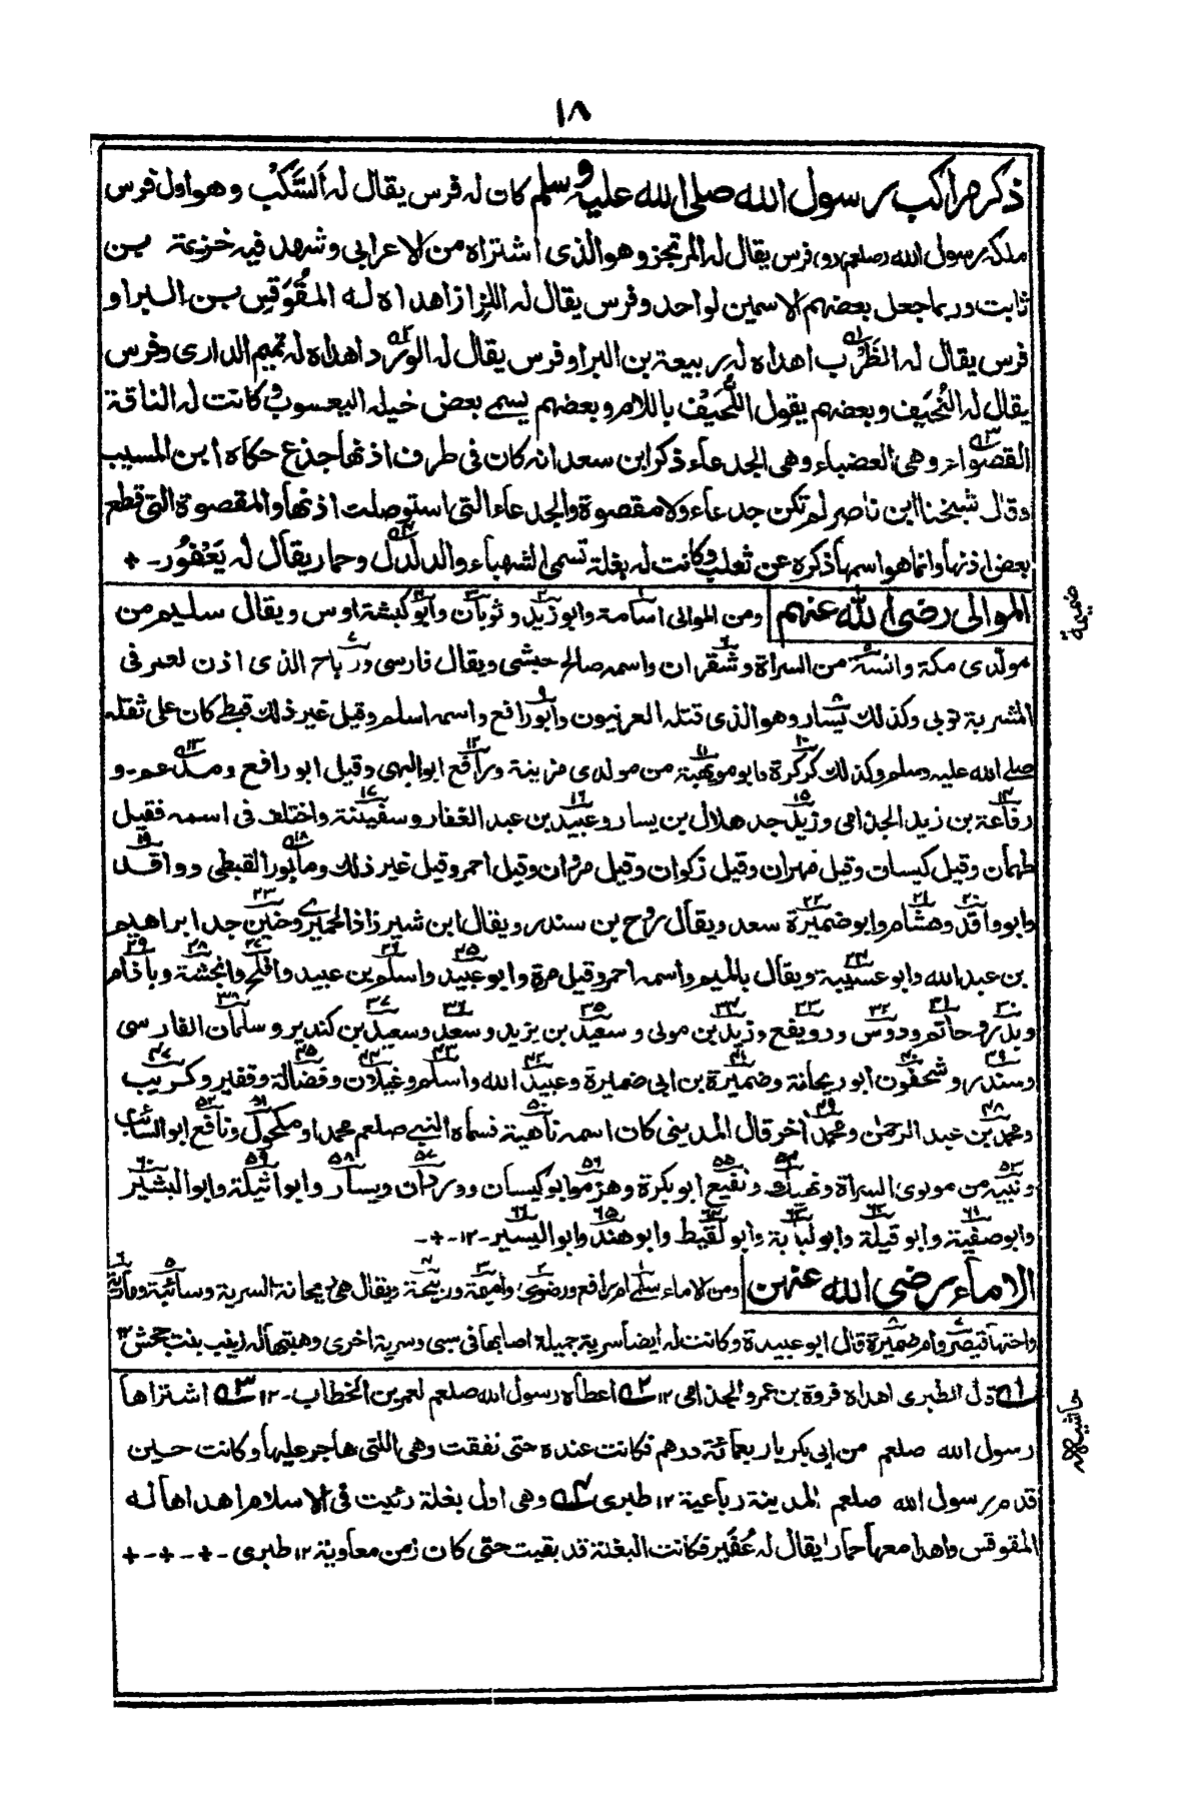 ١٨
ذكر مراكب رسول الله صلى الله عليه وسلم كان له فرس يقال له السَّكْبُ وهو اول فرس
ملكه رسول الله صلعم وفرس يقال له المرتجز وهو الذى اشتراه من الاعرابى وشهد فيه خزيمة بن
ثابت وربما جعل بعضهم الاسمين لواحد وفرس يقال له اللِزاز اهداه له المُقَوْقِس بن البراو
فرس يقال له الظَرْب اهداه له ربيعة بن البرا وفرس يقال له الورْد اهداه له تميم الدارى وفرس
يقال له النُحَيف وبعضهم يقول اللُّحَيْف باللام وبعضهم يسمى بعض خيله اليعسوب وكانت له الناقة
القصواء وهى العضباء وهى الجدعاء ذكر ابن سعد انه كان فى طرف اذنها جذع حكاه ابن المسيب
وقال شيخنا ابن ناصر لم تكن جدعاء ولا مقصوة والجدعاء التى استوصلت اذنها والمقصوة التى قطع
بعض اذنها وانما هو اسمها ذكره عن ثعلب وكانت له بغلة تسمى الشهباء والدلدل وحمار يقال له يَعْفُور ـ +
ضميمة
الموالى رضى الله عنهم ومن الموالى اسامة وابو زيد وثوبان وابو كبشة اوس ويقال سليم من
مولدى مكة وانسة من السراة وشقران واسمه صالح حبشى ويقال فارسى ورباح الذى اذن لعمر فى
المشربة نوبى وكذلك يسار وهو الذى قتله العرنيون وابو رافع واسمه اسلم وقيل غير ذلك قبطى كان على ثقله
صلى الله عليه وسلم وكذلك كركرة وابو مويهبة من مولدى مزينة ورافع ابو البهى وقيل ابو رافع ومدعم ـ و
رفاعة بن زيد الجذامى وزيد جد هلال بن يسار وعبيد بن عبد الغفار وسفينة واختلف فى اسمه فقيل
طهمان وقيل كيسان وقيل مهران وقيل ذكوان وقيل مروان وقيل احمر وقيل غير ذلك ومابور القبطى وواقد
وابو واقد وهشام وابو ضميرة سعد ويقال روح بن سندر ويقال ابن شيرزاذ الحميرى وحنين جد ابراهيم
بن عبد الله وابو عسيبة ويقال بالميم واسمه احمر وقيل مرة وابو عبيد واسلم بن عبيد وافلح وانجشة وباذام
وبدر وحاتم ودوس ورويفع وزيد بن مولى وسعيد بن يزيد وسعد وسعيد بن كندير وسلمان الفارسى
وسندر وشمعون ابو ريحانة وضميرة بن ابى ضميرة وعبيد الله واسلم وغيلان وفضالة وقفير وكريب
ومحمد بن عبد الرحمن ومحمد آخر قال المدينى كان اسمه ناهية فسماه النبى صلعم محمدا ومكحول ونافع ابو السائب
ونبيه من مولدى السراة ونهيك ونفيع ابو بكرة وهرمز ابو كيسان ووردان ويسار وابو اثيلة وابو البشير
وابو صفية وابو قيلة وابو لبابة وابو لقيط وابو هند وابو اليسير ـ ١٢ ـ + ـ
الاماء رضى الله عنهن ومن الاماء سلمى ام رافع ورضوى واميمة وربيحة ويقال هى ريحانة السرية وسائبة ومارية
واختها قيصر وام ضميرة قال ابو عبيدة وكانت له ايضا سرية جميلة اصابها فى سبى وسرية اخرى وهبتها له زينب بنت جحش ١٢
حاشيه
١ه قال الطبرى اهداه فروة بن عمرو الجذامى ١٢ ٢ه اعطاه رسول الله صلعم لعمر بن الخطاب ـ ١٢ ٣ه اشتراها
رسول الله صلعم من ابى بكر باربعمائة درهم فكانت عنده حتى نفقت وهى اللتى هاجر عليها وكانت حين
قدم رسول الله صلعم المدينة رباعية ١٢ طبرى ٤ه وهى اول بغلة رئيت فى الاسلام اهداها له
المقوقس واهدا معها حمارا يقال له عُفَير فكانت البغلة قد بقيت حتى كان زمن معاوية ١٢ طبرى ـ + ـ + ـ +